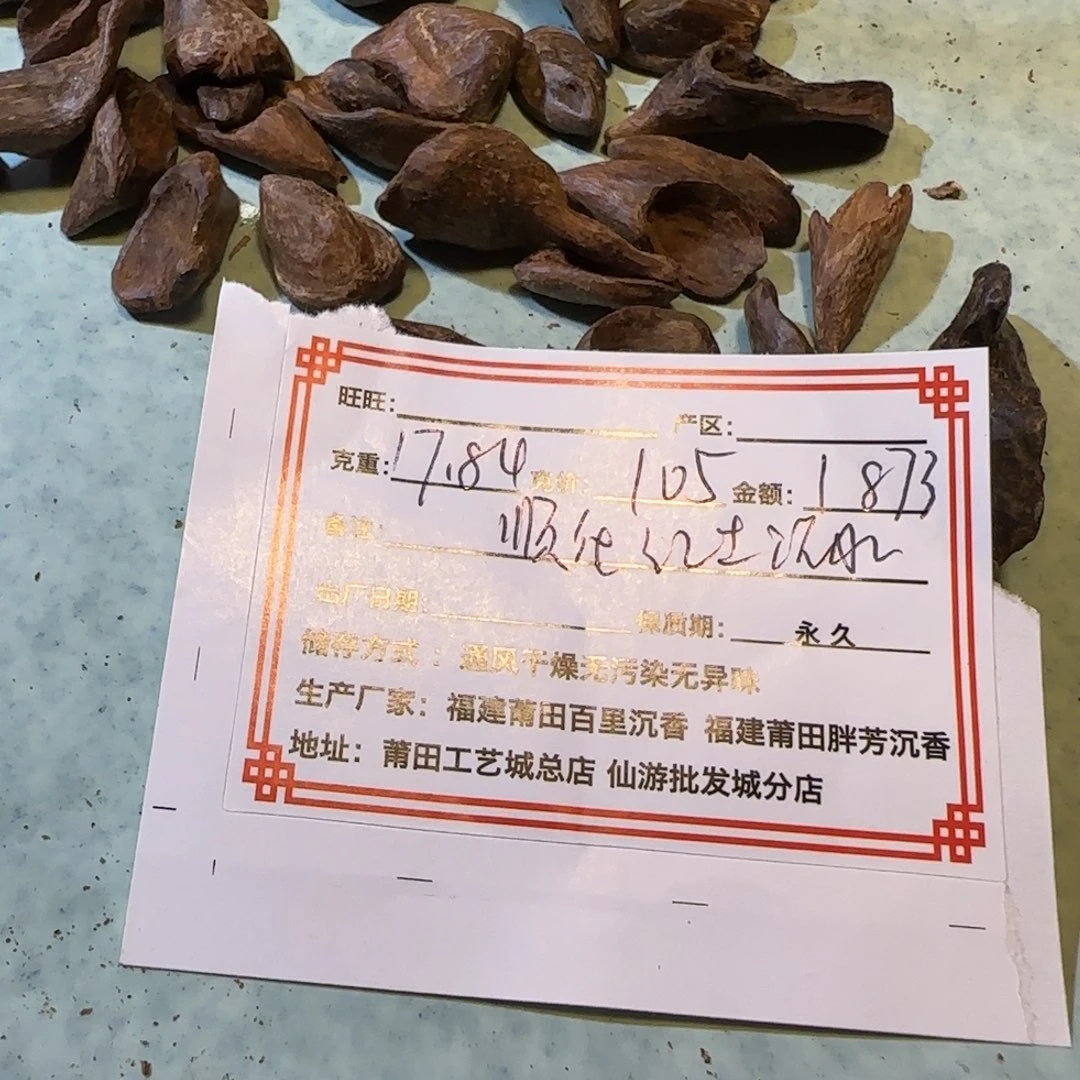 旺旺: 产区:
克重: 17.84 克价: 105 金额: 1873
备注: 顺化红土沉水
出厂日期: 保质期: 永久
储存方式：通风干燥无污染无异味
生产厂家：福建莆田百里沉香 福建莆田胖芳沉香
地址：莆田工艺城总店 仙游批发城分店